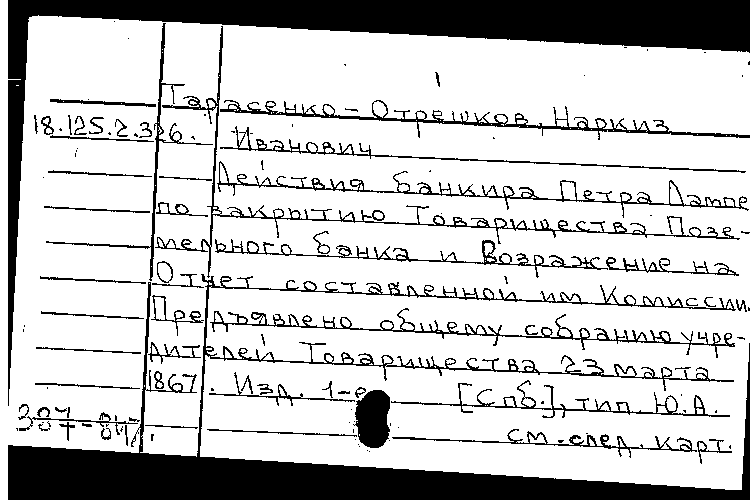 Тарасенко-Отрешков, Наркиз
18.125.2.326. Иванович
Действия банкира Петра Лампе
по закрытию Товарищества Позе-
мельного банка и Возражение на
Отчет составленной им Комиссии.
Предъявлено общему собранию учре-
дителей Товарищества 23 марта
1867. Изд. 1-е [Спб.], тип. Ю.А.
см. след. карт.